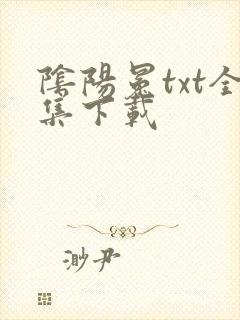 陰陽冕txt全
集下載
渺尹